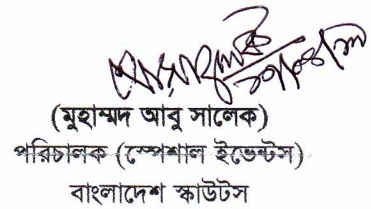 (মুহাম্মদ আবু সালেক)
পরিচালক (স্পেশাল ইভেন্টস)
বাংলাদেশ স্কাউটস